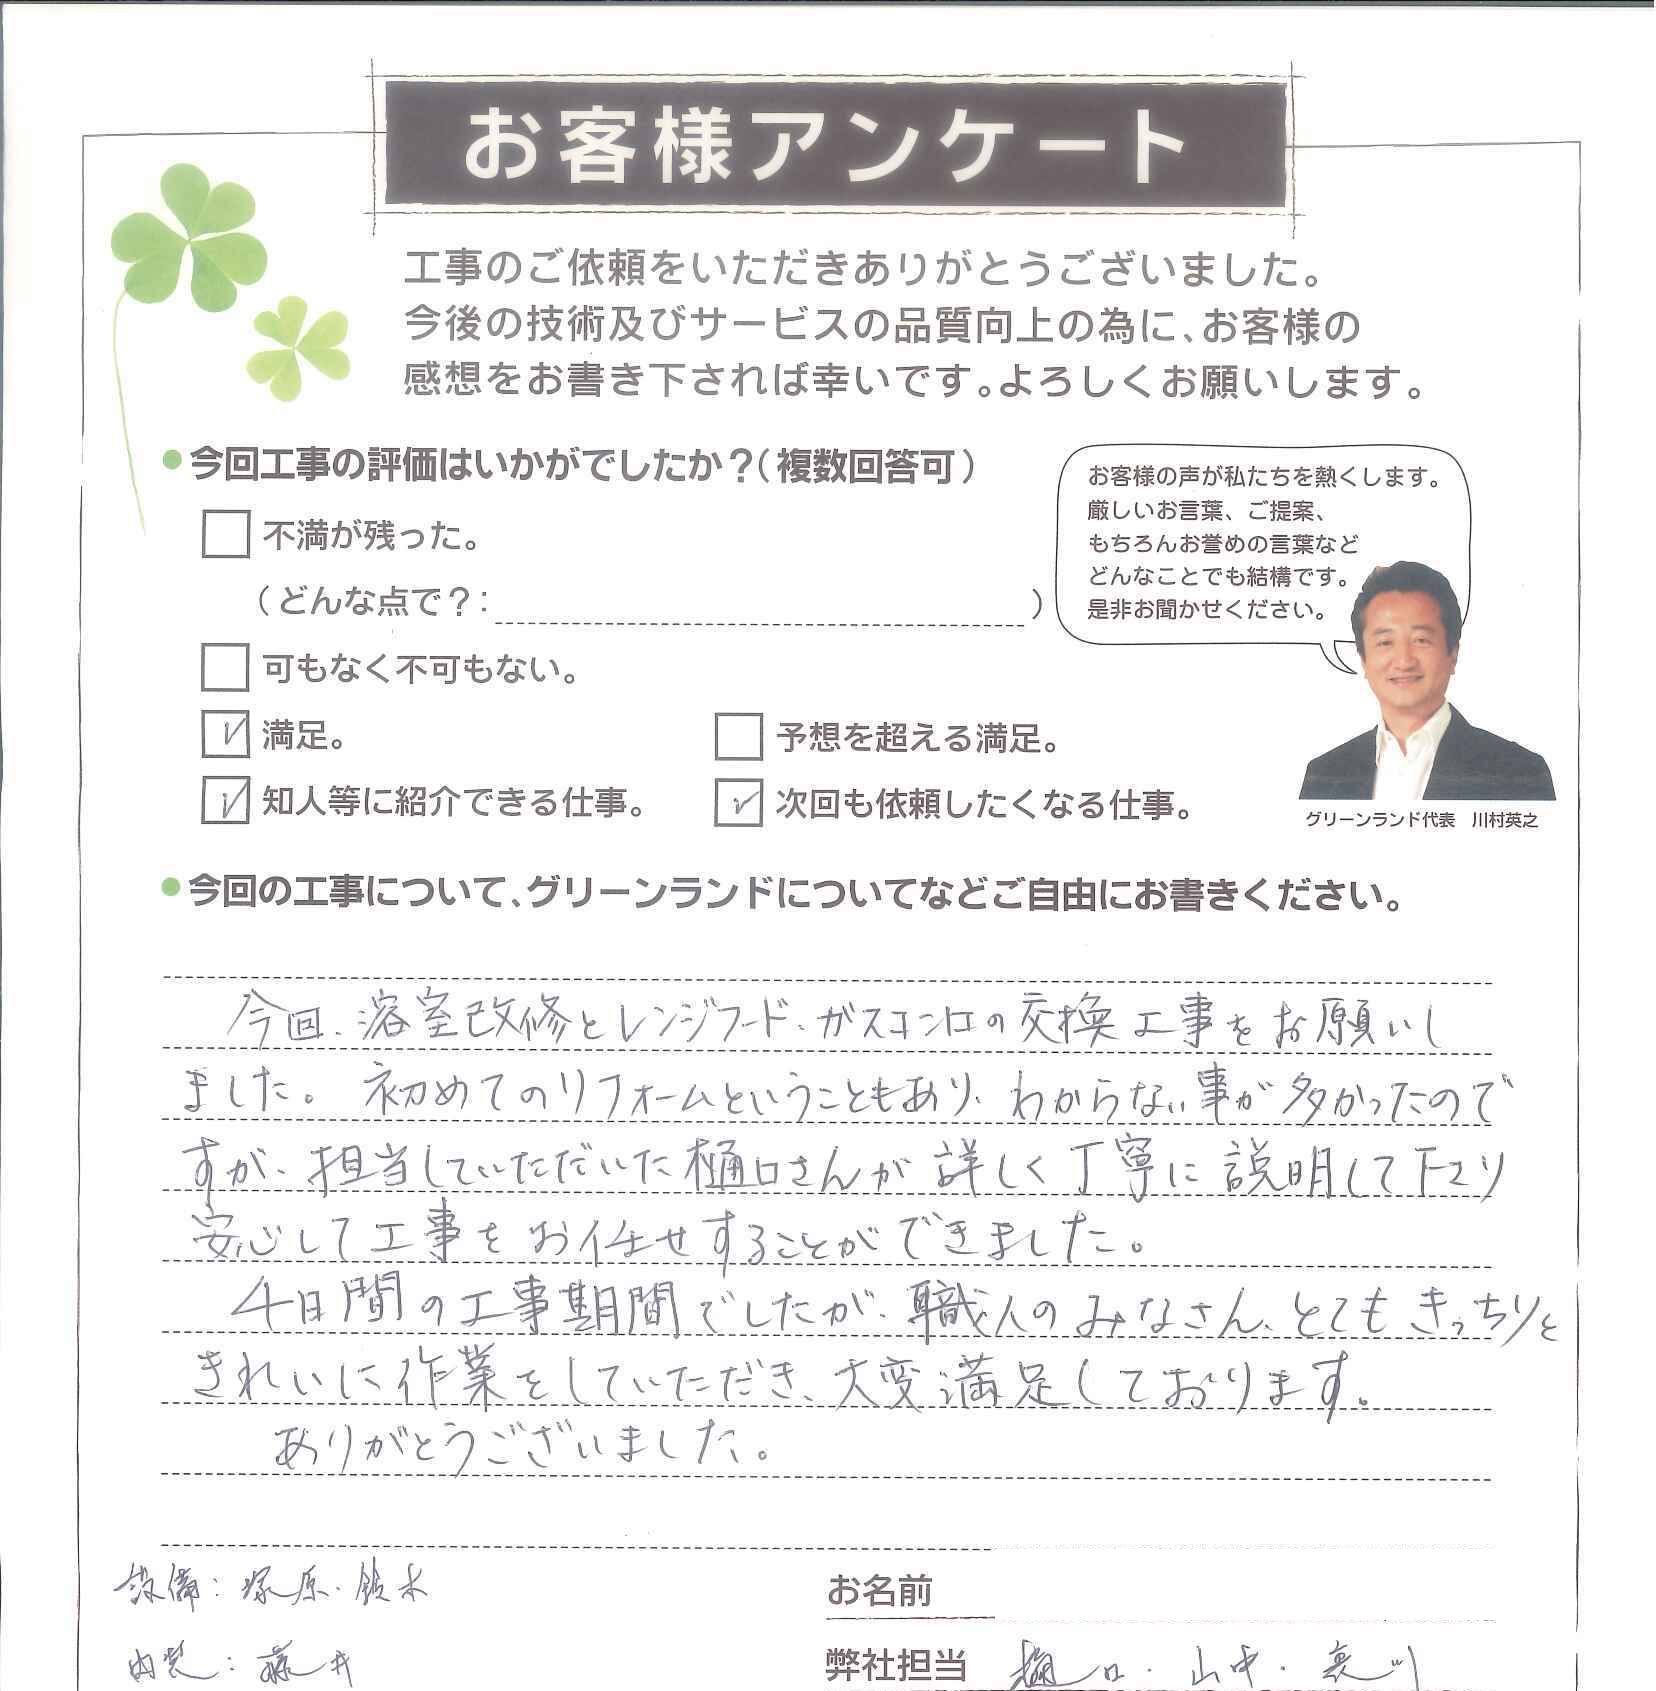 お客様アンケート
工事のご依頼をいただきありがとうございました。
今後の技術及びサービスの品質向上の為に、お客様の
感想をお書き下されば幸いです。よろしくお願いします。
今回工事の評価はいかがでしたか？（複数回答可）
不満が残った。
（どんな点で？： ）
可もなく不可もない。
満足。
予想を超える満足。
知人等に紹介できる仕事。
次回も依頼したくなる仕事。
お客様の声が私たちを熱くします。
厳しいお言葉、ご提案、
もちろんお誉めの言葉など
どんなことでも結構です。
是非お聞かせください。
グリーンランド代表　川村英之
今回の工事について、グリーンランドについてなどご自由にお書きください。
今回、浴室改修とレンジフード、ガスコンロの交換工事をお願いし
ました。初めてのリフォームということもあり、わからない事が多かったので
すが、担当していただいた樋口さんが詳しく丁寧に説明して下さり
安心して工事をお任せすることができました。
4日間の工事期間でしたが、職人のみなさん、とてもきっちりと
きれいに作業をしていただき、大変満足しております。
ありがとうございました。
設備：塚原・鈴木
内装：藤井
お名前
弊社担当 樋口・山中・